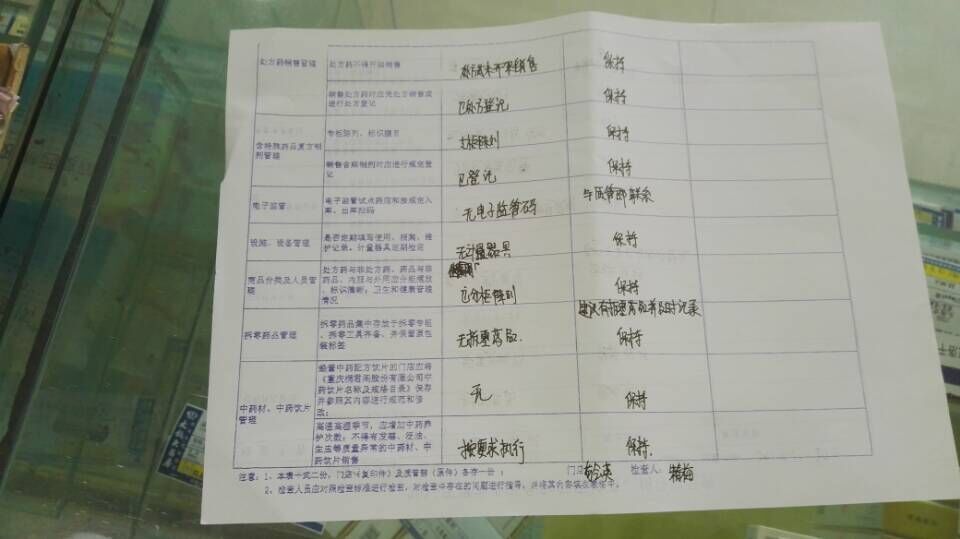 处方药销售管理
处方药不得开架销售
保持
销售处方药时应凭处方销售或
进行处方登记
已处方登记
保持
含特殊药品复方制
剂管理
专柜陈列、标识醒目
专柜陈列
保持
销售含麻制剂时应进行规定登
记
已登记
保持
电子监管
电子监管试点药店和按规定入
库、出库扫码
无电子监管码
与质管部联系
设施、设备管理
是否定期填写使用、检测、维
护记录。计量器具定期检定
无计量器具
保持
商品分类及人员管
理
处方药与非处方药、药品与非
药品、内服与外用应分柜摆放
、标识清晰；卫生和健康管理
情况
已分柜陈列
保持
拆零药品管理
拆零药品集中存放于拆零专柜
、拆零工具齐备、并保留原包
装标签
无拆零药品.
建议有拆零药品并及时记录
保持
中药材、中药饮片
管理
经营中药配方饮片的门店应将
《重庆桐君阁股份有限公司中
药饮片名称及规格目录》保存
并参照其内容进行规范和修
改；
无
保持
高温高湿季节，应增加中药养
护次数；不得有发霉、泛油、
生虫等质量异常的中药材、中
药饮片销售
按要求执行
保持.
注意：1、本表一式二份，门店（复印件）及质管部（原件）各存一份；
检查人：
2、检查人员应对照检查标准进行检查，对检查中存在的问题进行指导，并将其内容填入表格中。